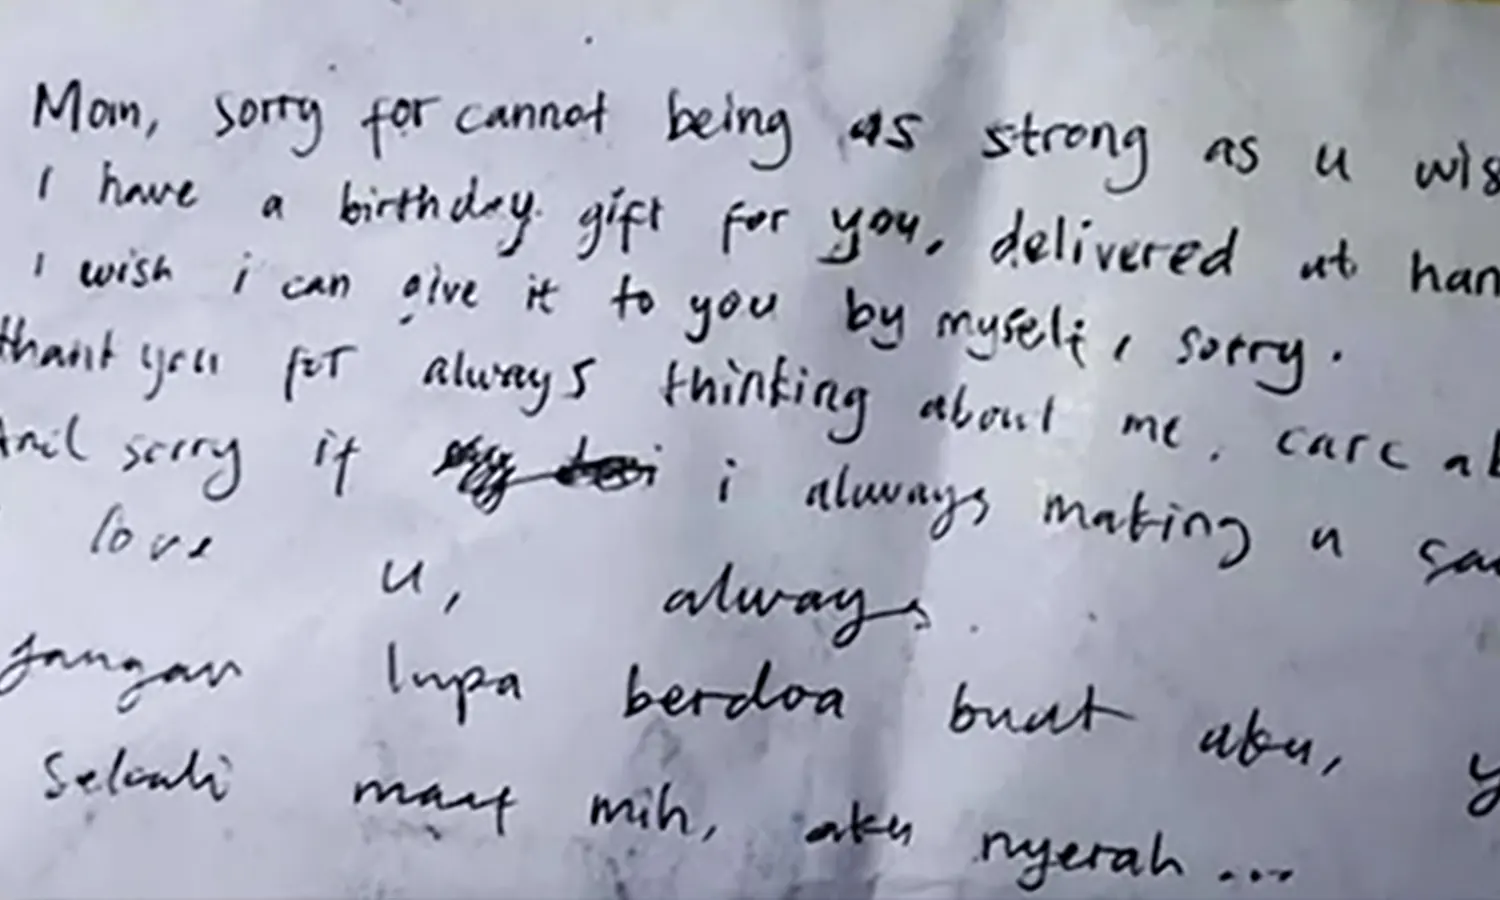 Mom, sorry for cannot being as strong as u wis
I have a birthday gift for you, delivered at han
I wish i can give it to you by myself, sorry.
thank you for always thinking about me, care ab
And sorry if i always making u sad
love u, always.
jangan lupa berdoa buat aku, y
Sekali maaf mih, aku nyerah...